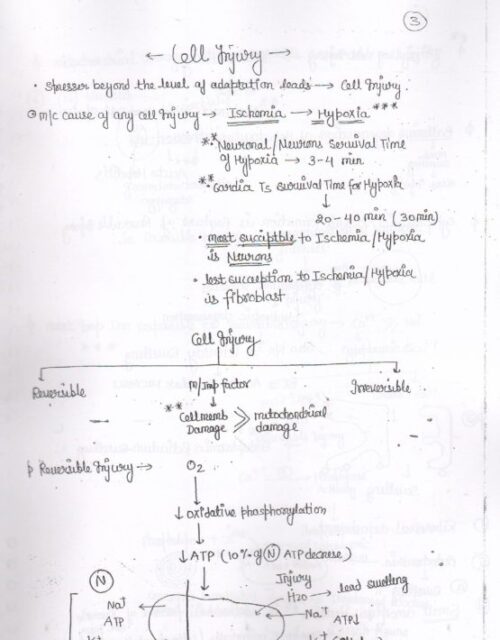 3
← Cell Injury →
• stresser beyond the level of adaptation leads → Cell Injury.
m/c cause of any cell Injury → Ischemia → Hypoxia ***
** Neuronal/Neurons Servival Time
of Hypoxia → 3-4 min
** Cardia Ts survival Time for Hypoxia
↓
20-40 min (30min)
• most suciptble to Ischemia/Hypoxia
is Neurons
• lest suceaption to Ischemia/Hypoxia
is fibroblast
Cell Injury
Reversible m/Imp factor Irreversible
↓
** Cell memb >> mitochondrial
Damage damage
Reversible Injury → O2
↓
↓ oxidative phosphorylation
↓
↓ ATP (10% of (N) ATP decrese)
↓
(N) Injury
H2O → lead swelling
Na+ Na+
ATP ATP↓